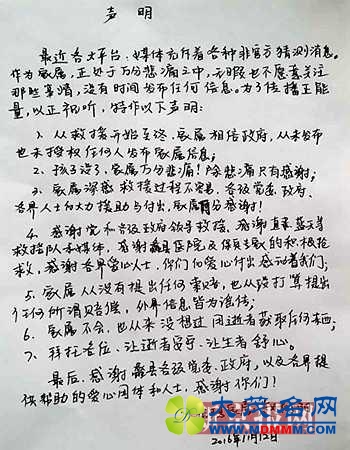 声明
最近各大平台、媒体充斥着各种非官方猜测消息。
作为家属，正处于万分悲痛之中，无暇也不愿意关注
那些事情，没有时间发布任何信息。为了传播正能
量，以正视听，特作以下声明：
1、从救援开始至终，家属相信政府，从未发布
也未授权任何人发布家属信息；
2、孩子没了，家属万分悲痛！除悲痛只有感谢；
3、家属深感救援过程不容易，各级党委、政府、
各界人士的大力援助与付出，家属万分感谢！
4、感谢党和各级政府领导救援，感谢蓝天等
救援队和媒体，感谢蠡县医院及保定的积极抢
救，感谢各界爱心人士，你们的爱心付出感动着我们；
5、家属从没有提出任何要求，也从没打算提出
任何所谓赔偿，外界信息皆为谣传；
6、家属不会，也从来没想过因逝者获取任何东西；
7、拜托各位，让逝者安宁，让生者舒心。
最后，感谢蠡县各级党委、政府，以及各界提
供帮助的爱心团体和人士，感谢你们！
2016年11月12日
大秦名网
WWW.MDMMM.COM